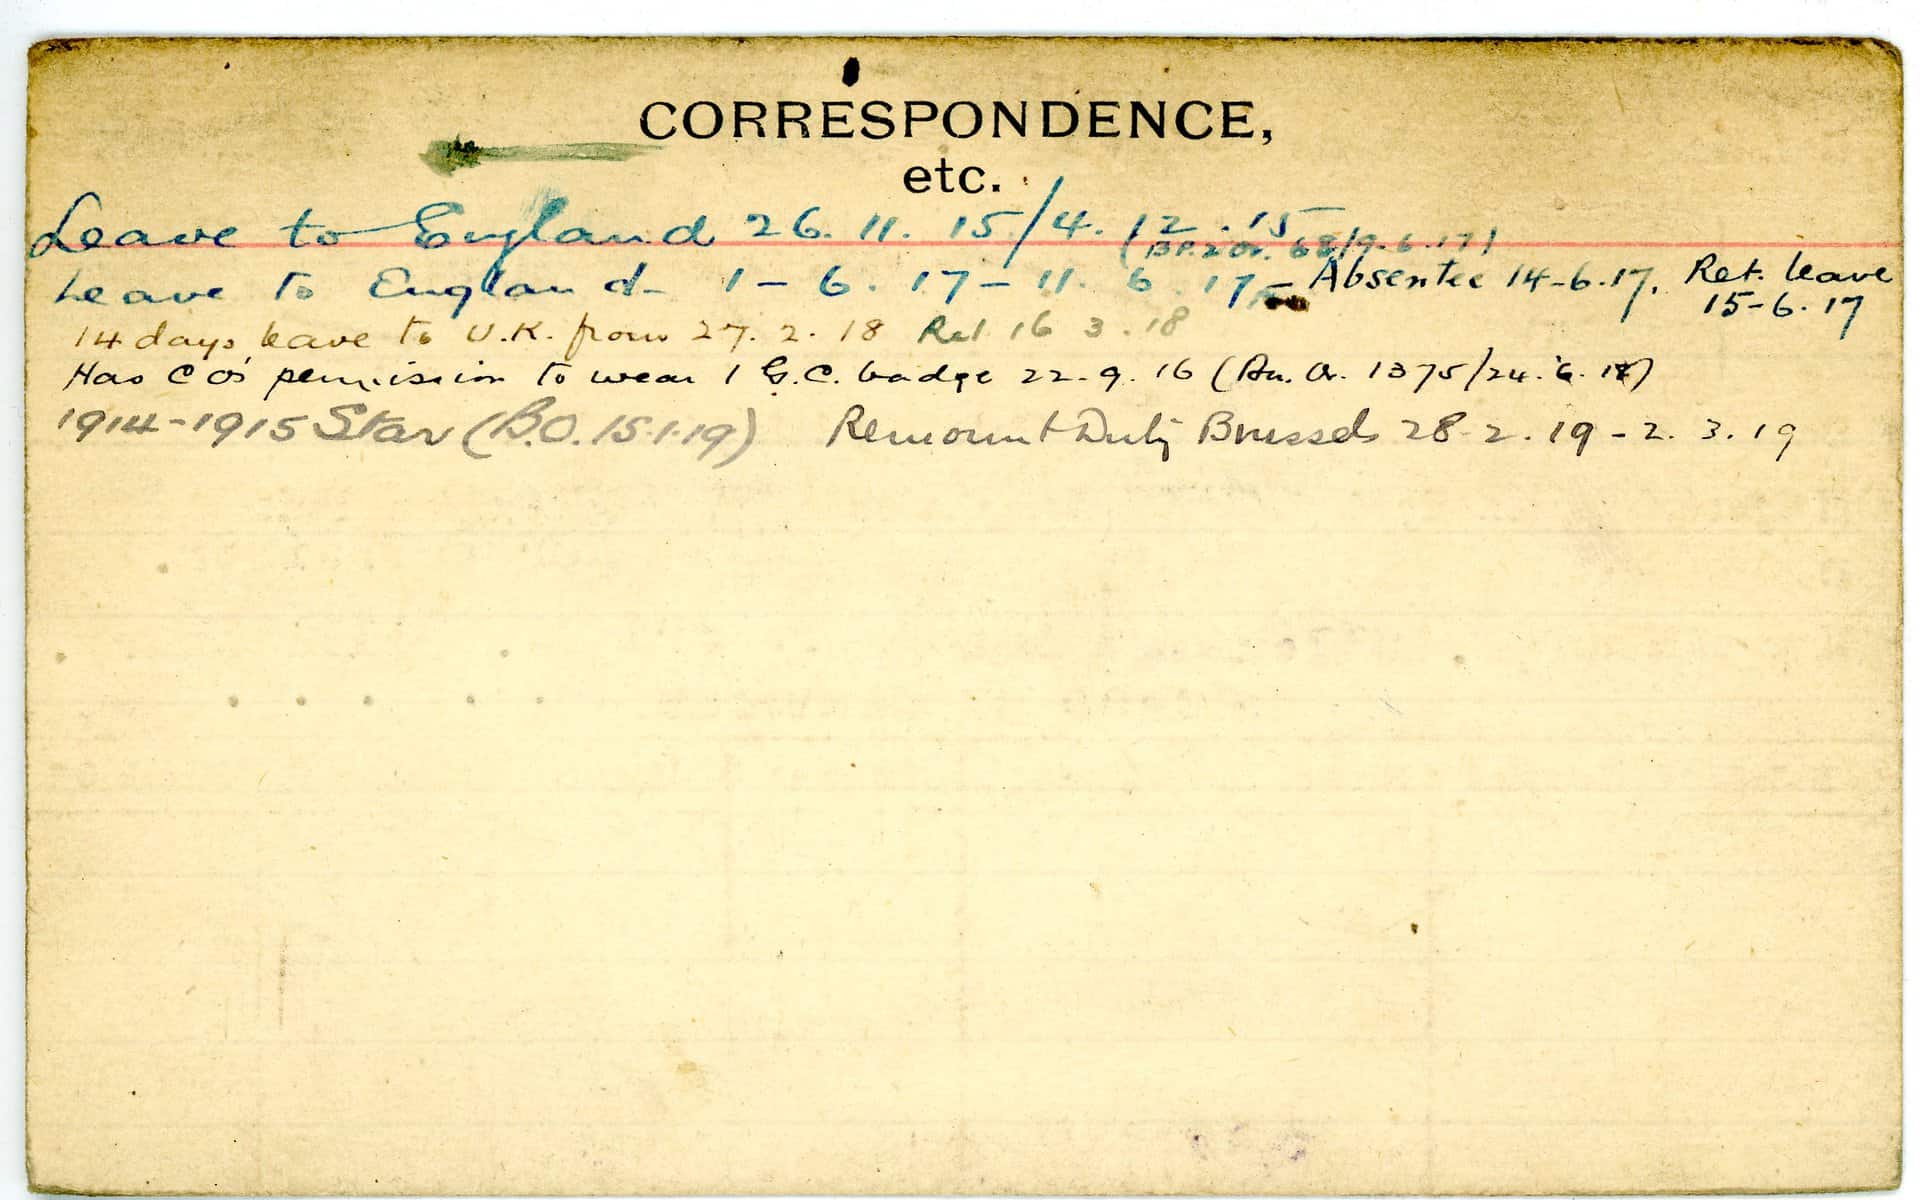 CORRESPONDENCE,
etc.
Leave to England 26. 11. 15/4. 12. 15
68/9.6.17)
Leave to England 1-6.17-11.6.17 Absentee 14-6.17. Ret. leave
15-6.17
14 days leave to U.K. from 27.2.18 Ret 16 3.18
Has C O's permission to wear 1 G.C. badge 22.9.16 ( 1375/24.6.18)
1914-1915 Star (B.O. 15.1.19) Remount Duty Brussels 28-2.19-2.3.19